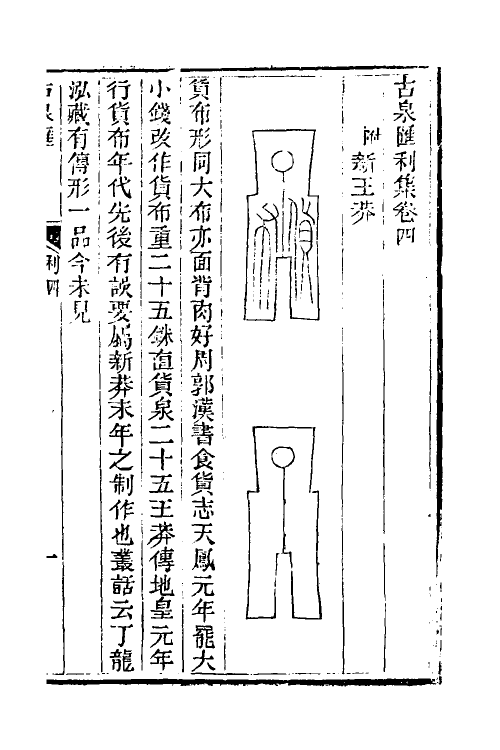 古泉匯利集卷四
附
新王莽
貨布
貨布形同大布亦面背肉好周郭漢書食貨志天鳳元年罷大
小錢改作貨布重二十五銖直貨泉二十五王莽傳地皇元年
行貨布年代先後有誤要屬新莽末年之制作也叢話云丁龍
泓藏有傳形一品今未見
古泉匯
利四
一